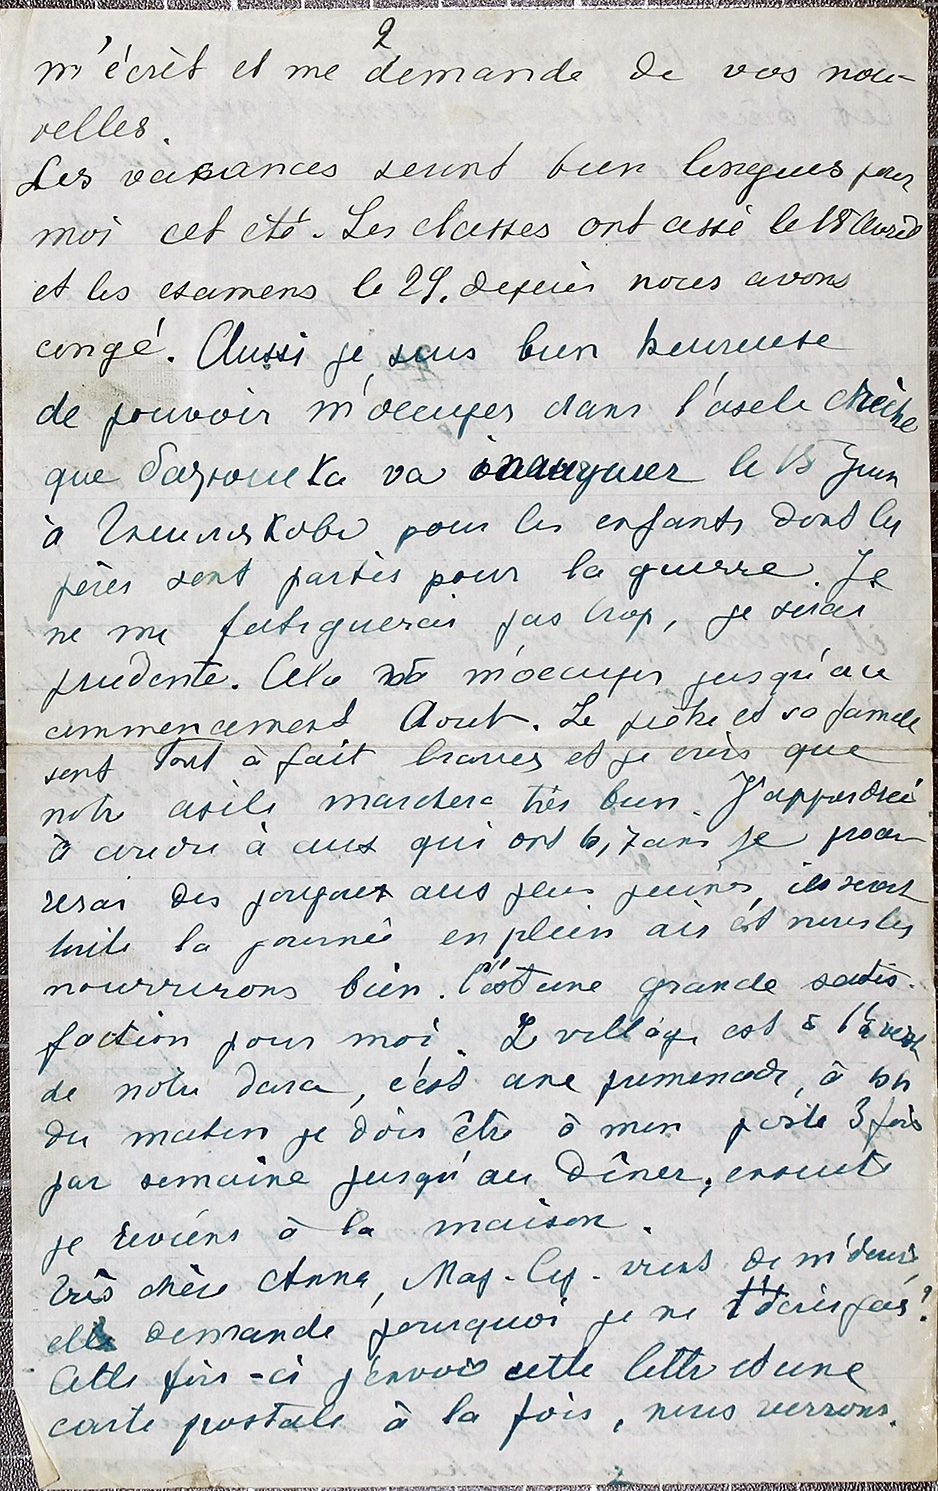 2
m'écrit et me demande de vos nou-
velles.
Les vacances seront bien longues pour
moi cet été. Les classes ont cessé le 18 Avril
et les examens le 29. depuis nous avons
congé. Aussi je suis bien heureuse
de pouvoir m'occuper dans l'asile crèche
que va inaugurer le 15 Juin
à pour les enfants dont les
pères sont partis pour la guerre. Je
ne me fatiguerai pas trop, je serai
prudente. Cela m'occuper jusqu'au
commencement Aout. Le et sa famille
sont tout à fait braves et je crois que
notre asile marchera très bien. J'apprendrai
à coudre à ceux qui ont 6, 7 ans je procu-
rerai des joujoux aux plus jeunes, ils seront
toute la journée en plein air et nous les
nourrirons bien. C'est une grande satis-
faction pour moi. Le village est à
de notre, c'est une promenade, à
du matin je dois être à mon poste 3 fois
par semaine jusqu'au dîner, ensuite
je reviens à la maison.
Très chère Anna, vient de m'écrire,
elle demande pourquoi je ne t'écris pas?
Cette fois-ci j'envoie cette lettre et une
carte postale à la fois, nous verrons.